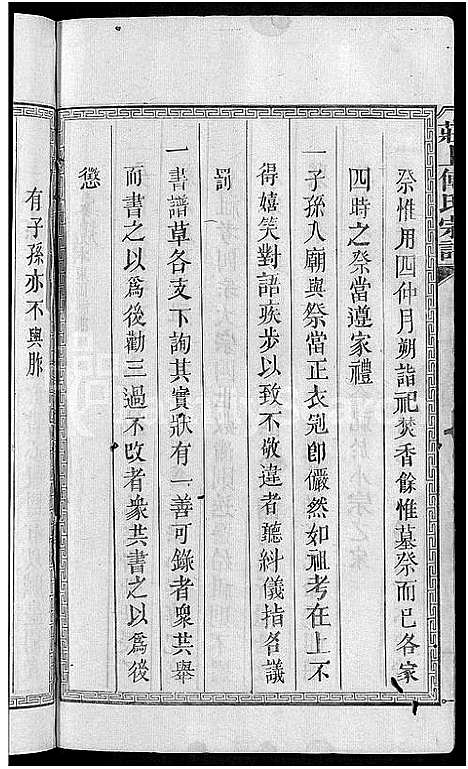 祭惟用四仲月朔詣祀焚香餘惟墓祭而已各家
四時之祭當遵家禮
一子孫入廟與祭當正衣冠卽儼然如祖考在上不
得嬉笑對語疾步以致不敬違者聽糾儀指名議
罰
一書譜草各支下詢其實狀有一善可錄者衆共舉
而書之以爲後勸三過不改者衆共書之以爲後
懲
有子孫亦不與胙